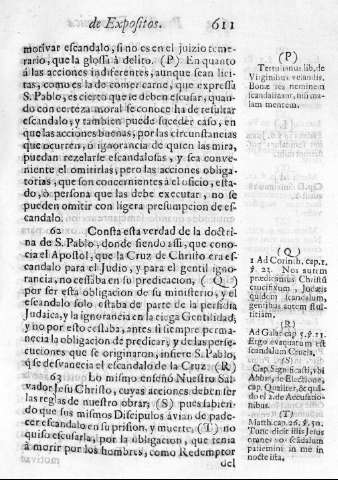 de Expositos. 611
motivar escandalo, si no es en el juizio teme-
rario, que la glossa à delito. (P) En quanto
á las acciones indiferentes, aunque sean lici-
tas, como es la de comer carne, que expressa
S. Pablo, es cierto que se deben escusar, quan-
do con certeza moral se conoce ha de resultar
escandalo; y tambien puede suceder caso, en
que las acciones buenas, por las circunstancias
que ocurren, ó ignorancia de quien las mira,
puedan rezelarse escandalosas, y sea conve-
niente el omitirlas; pero las acciones obliga-
torias, que son concernientes à el oficio, esta-
do, ò persona que las debe executar, no se
pueden omitir con ligera presumpcion de es-
candalo.
62 Consta esta verdad de la doctri-
na de S. Pablo, donde siendo assi, que cono-
cia el Apostol, que la Cruz de Christo era es-
candalo para el Judio, y para el gentil igno-
rancia, no cessaba en su predicacion, (Q)
por ser esta obligacion de su ministerio, y el
escandalo solo estaba de parte de la perfidia
Judaica, y la ignorancia en la ciega Gentilidad,
y no por esto cessaba, antes si siempre perma-
necia la obligacion de predicar, y de las perse-
cuciones que se originaron, infiere S. Pablo,
q̃ se desvanecia el escandalo de la Cruz. (R)
63 Lo mismo enseñó Nuestro Sal-
vador Jesu Christo, cuyas acciones deben ser
las reglas de nuestro obrar; (S) pues sabien-
do que sus mismos Discipulos avian de pade-
cer escandalo en su prision, y muerte, (T) no
quiso escusarla, por la obligacion, que tenia
à morir por los hombres, como Redemptor
del
(P)
Tertulianus lib. de
Virginibus velandis.
Bonæ res neminem
scandalizant, nisi ma-
lam mentem.
(Q)
1 Ad Corinth. cap. 1.
℣. 23. Nos autem
prædicamus Christũ
crucifixum, Judæis
quidem scandalum,
gentibus autem stul-
titiam.
(R)
Ad Galat. cap. 5. ℣. 11.
Ergo evaquatum est
scandalum Crucis.
(S)
Cap. Significasti, vbi
Abbas, de Electione,
cap. Qualiter, & quã-
do el 2. de Accusatio-
nibus.
(T)
Matth. cap. 26. ℣. 30.
Tunc dicit illis Jesus
omnes vos scãdalum
patiemini in me in
nocte ista.